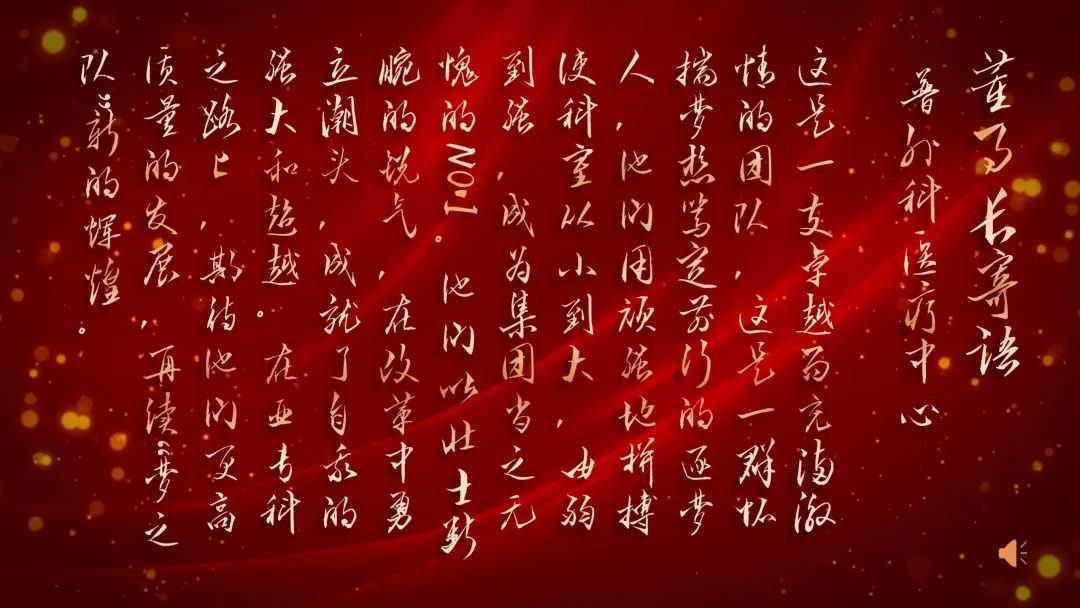 董事长寄语
普外科医疗中心
这是一支卓越而充满激
情的团队，这是一群怀
揣梦想笃定前行的逐梦
人，他们用顽强地拼搏
使科室从小到大，由弱
到强，成为集团当之无
愧的NO.1。他们以壮士断
腕的锐气，在改革中勇
立潮头，成就了自我的
强大和超越。在亚专科
之路上，期待他们更高
质量的发展，再续“梦之
队”新的辉煌。